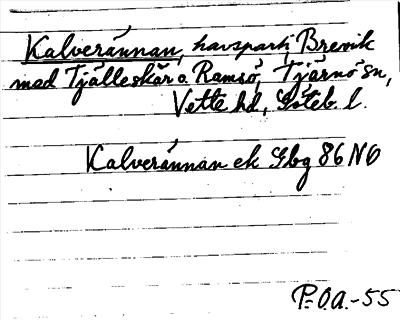 Kalverännan, havsparti, Brevik
med Tjälleskär o Ramsö, Tjärnö sn,
Vette hd, Göteb. l.
Kalverännan ek Gbg 86 NO
P.O.A.-55